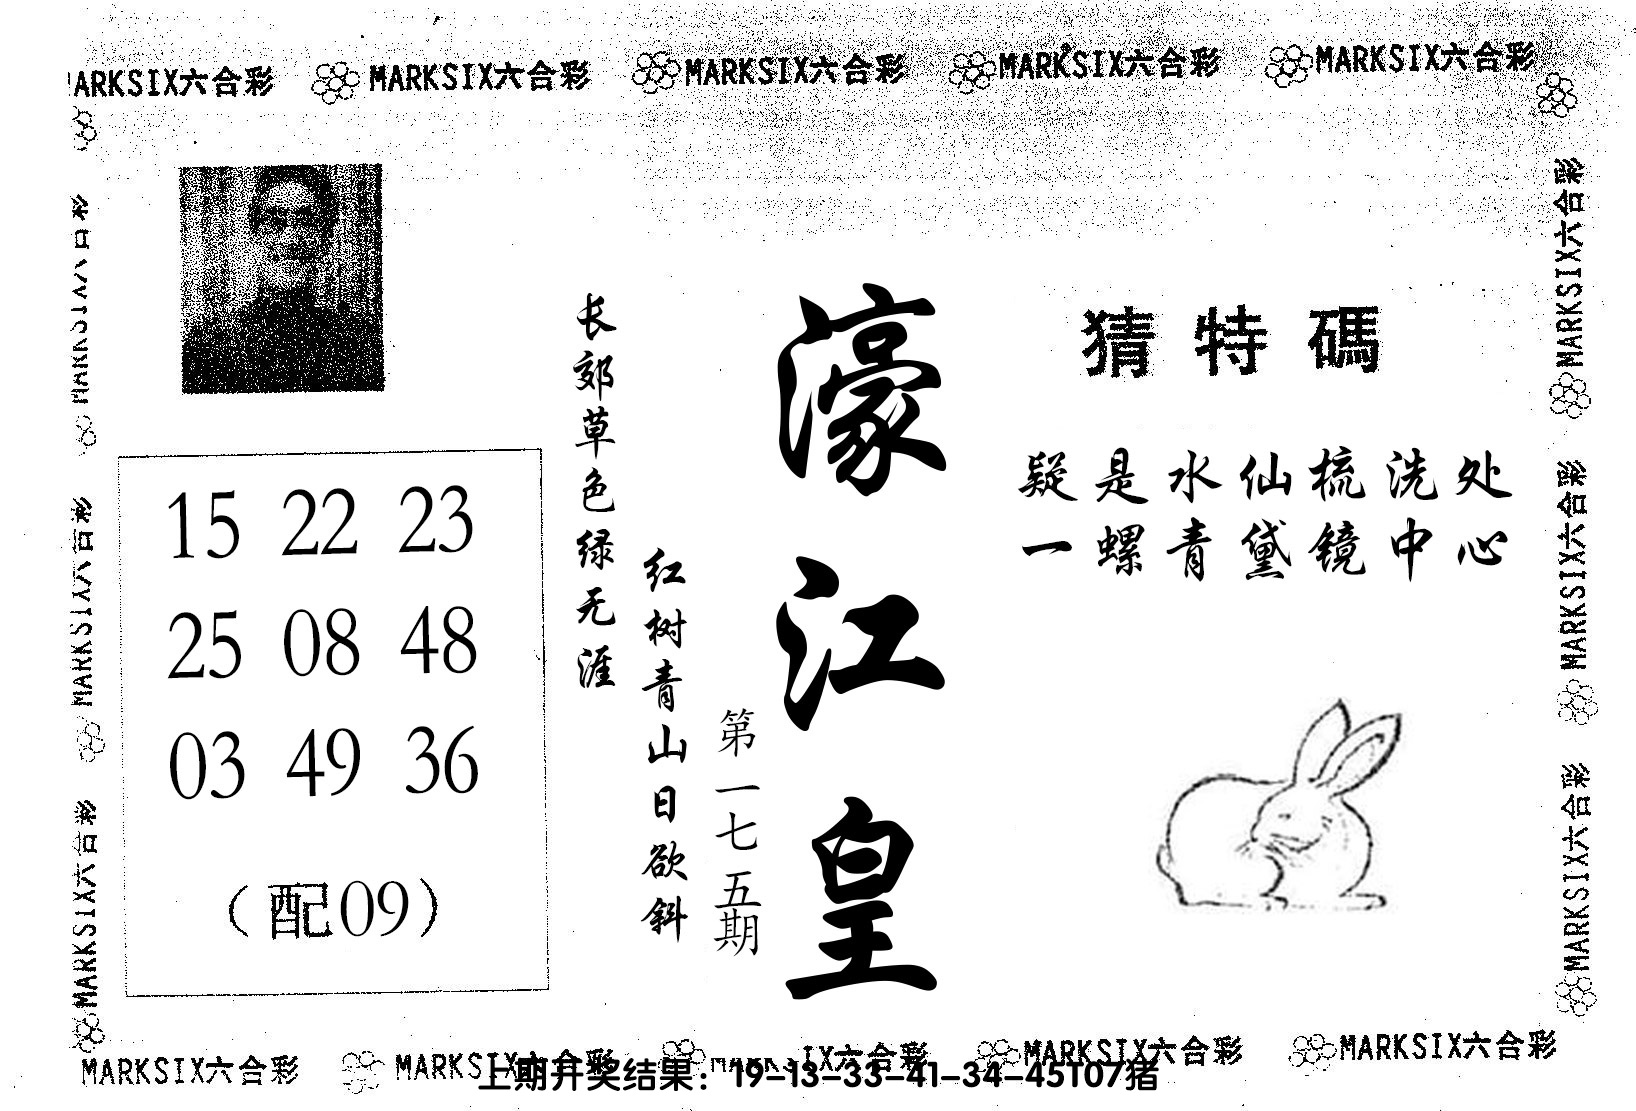 MARKSIX六合彩 MARKSIX六合彩 MARKSIX六合彩 MARKSIX六合彩
猜特碼
疑是水仙梳洗处
一螺青黛镜中心
濠江皇
第一七五期
红树青山日欲斜
长郊草色绿无涯
15 22 23
25 08 48
03 49 36
（配09）
MARKSIX六合彩
MARKSIX六合彩
MARKSIX六合彩
MARKSIX六合彩
MARKSIX六合彩
MARKSIX六合彩 MARKSIX六合彩 MARKSIX六合彩 MARKSIX六合彩
上期开奖结果：19-13-33-41-34-45T07猪